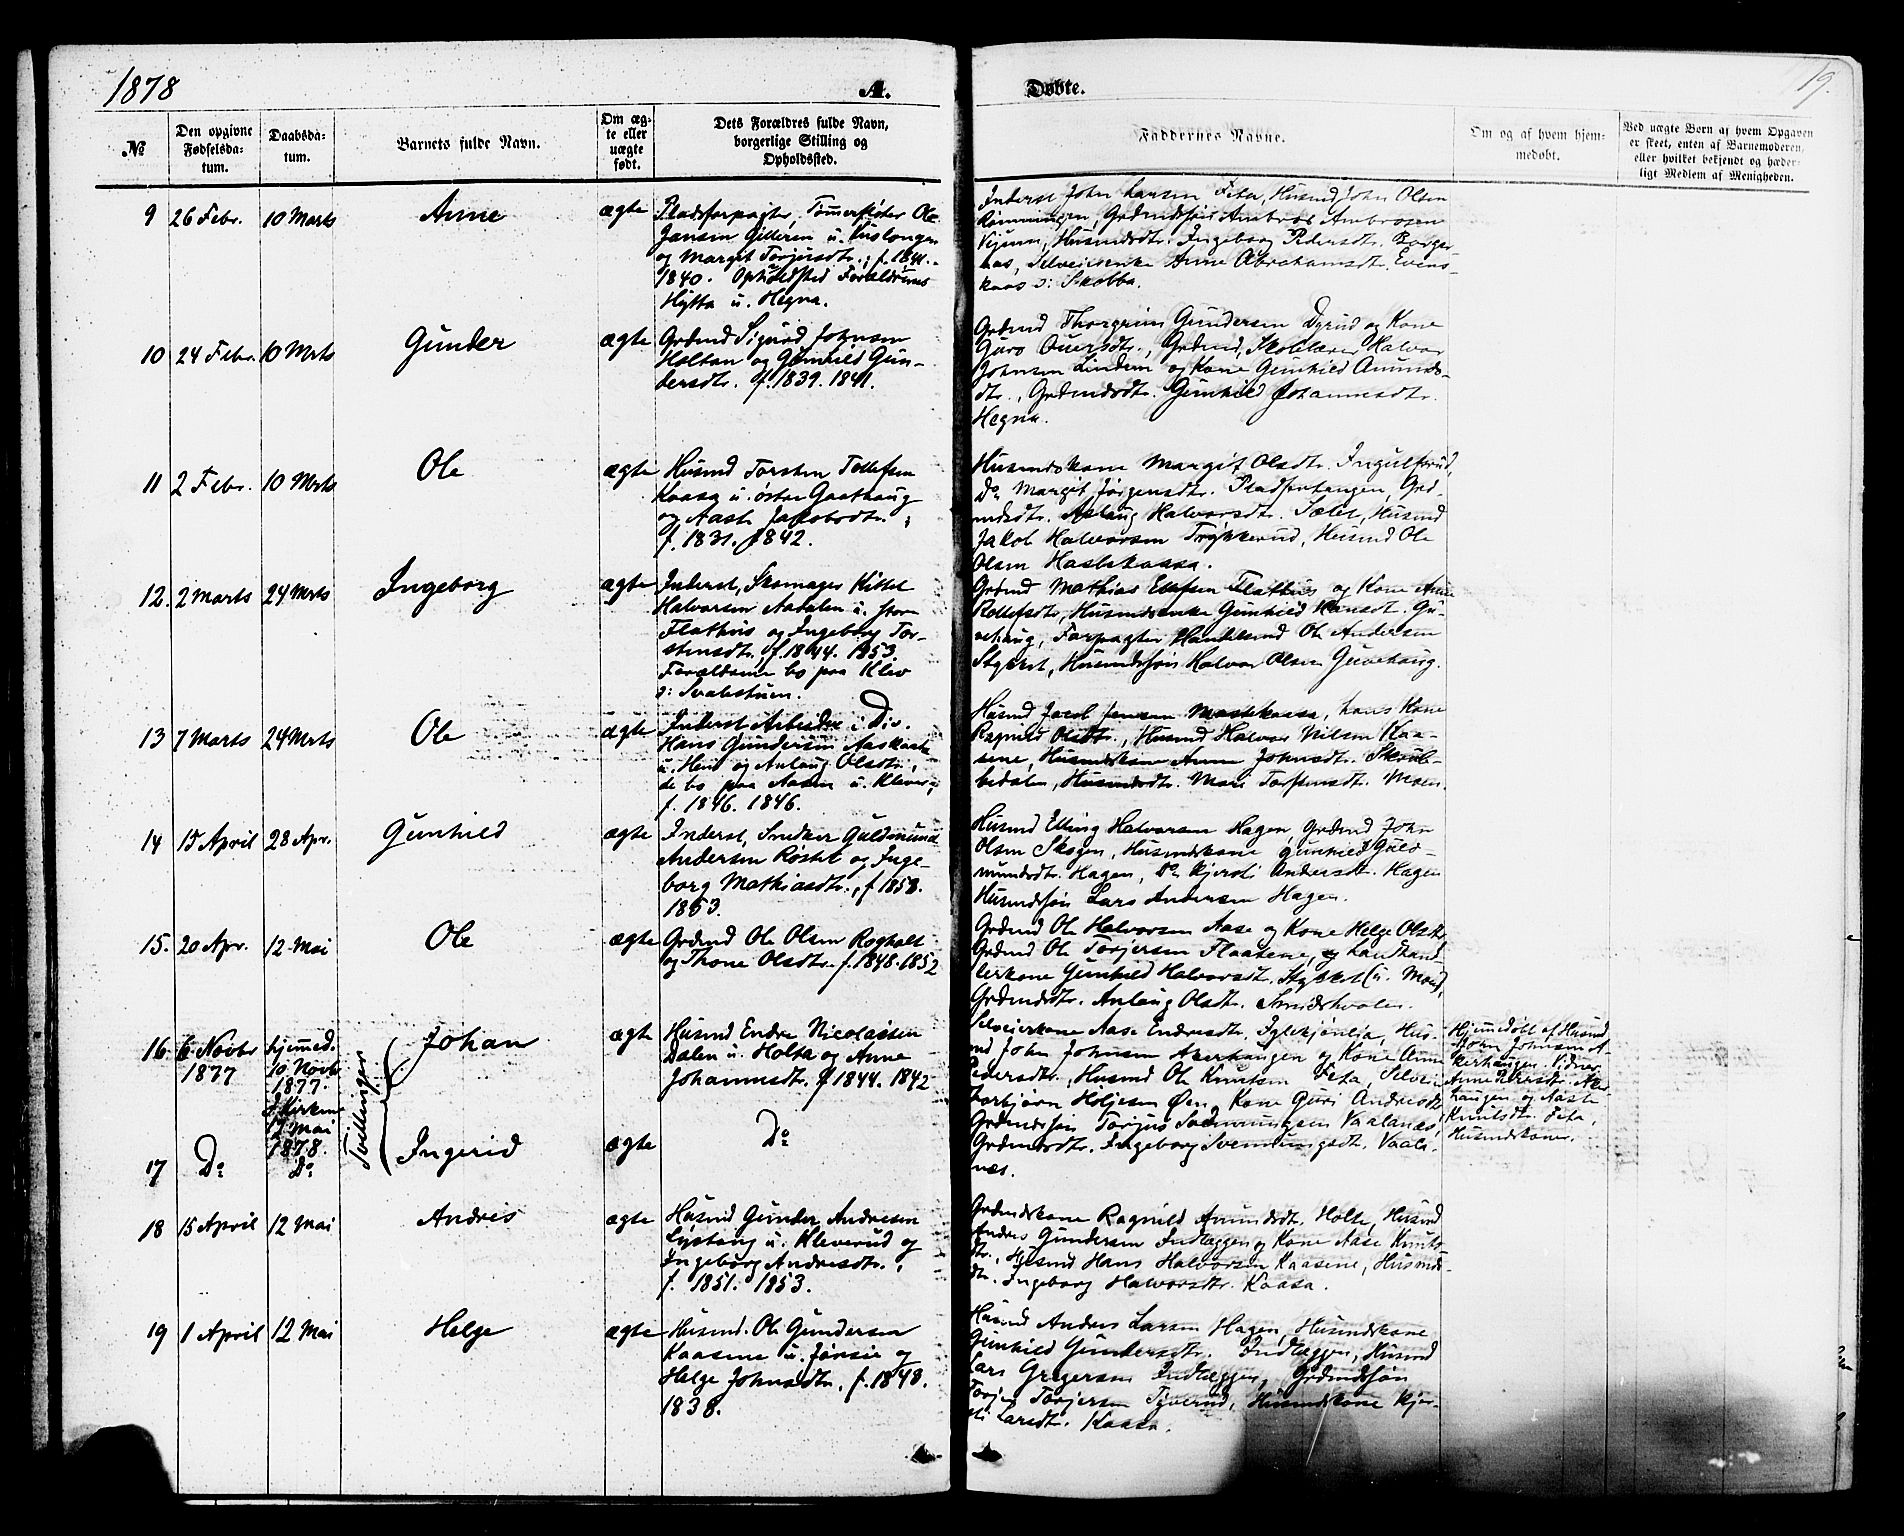 1878
A.
Døbte.
19.
№
Den opgivne
Fødselsda-
tum.
Daabsda-
tum.
Barnets fulde Navn.
Om æg-
te eller
uægte
født.
Dets Forældres fulde Navn,
borgerlige Stilling og
Opholdssted.
Faddernes Navne.
Om og af hvem hjem-
medøbt.
Ved uægte Børn af hvem Opgaven
er skeet, enten af Barnemoderen,
eller hvilket bekjendt og hæder-
ligt Medlem af Menigheden.
9
26 Febr.
10 Marts
Anne
ægte
Pladsforpagter, Tømmerfløter Ole
Jansen Gilleren u.
og Margit Torjersdtr., f. 1841.
1840. Opholdsted Forældrenes
Hytta u. Hegna.
Inderst John Larsen Feta, Husmd John Olsen
Rønningen, Grdmdsføn Ambros Ambrosen
Husmdsdtr. Ingeborg Pedersdtr. Borger-
aas, Selveierenke Anne Abrahamsdtr. Evens-
kaas ɔ: Skobba.
10
24 Febr.
10 Mrts
Gunder
ægte
Grdmd Sigurd Johnsen
Holtan og Gunhild Gun-
dersdtr. f. 1839. 1841.
Grdmd Thorgrim Gundersen Dyrud og Kone
Guro Ouersdtr., Grdmd, Skolelærer Halvor
Johnsen Lindem og Kone Gunhild Amunds-
dtr., Grdmdsdtr. Gunhild Johannesdtr.
Hegna.
11
2 Febr.
10 Mrts
Ole
ægte
Husmd Torsten Tollefsen
Kaasa u. østre Gaathaug
og Aaste Jakobsdtr.;
f. 1831. 1842.
Husmdskone Margit Olsdtr. Ingulfsrud,
Do Margit Jørgensdtr. Pladsentangen, Grd-
mdsdtr. Aslaug Halvorsdtr. Sælet, Husmd
Jakob Halvorsen Trykkerud, Husmd Ole
Olsen Haslekaasa.
12.
2 Marts
24 Mrts
Ingeborg
ægte
Inderst, Skomager Kittel
Halvorsen Aadalen u.
Flathus og Ingeborg Tor-
stensdtr. f. 1844. 1853.
Forældrene bo paa Klev
ɔ: Svalestuen.
Grdmd Mathias Ellefsen Flathus og Kone Anne
Rollefsdtr, Husmdsenke Gunhild Hansdt. Gu-
vehaug, Forpagter Handelsmd Ole Andersen
Stykket, Husmdsføn Halvor Olsen Guvehaug.
13
7 Marts
24 Mrts
Ole
ægte
Inderst Arbeider i Div.
Hans Gundersen Aaskaase
u. Hem og Anlaug Olsdtr.,
de bo paa Aasen u. Kleven;
f. 1846. 1846.
Husmd Jacob Jensen Maslekaasa, hans Kone
Ragnild Olsdtr., Husmd Halvor Nilsen Kaa-
sene, Husmdskone Anne Johnsdtr. Skoul-
bedalen, Husmdsdtr. Mari Torstensdtr. Moen.
14
15 April
28 Apr.
Gunhild
ægte
Inderst, Snedker Guldmund
Andersen Røstet og Inge-
borg Mathiasdtr., f. 1858.
1853.
Husmd Elling Halvorsen Hagen, Grdmd John
Olsen Skogen, Husmdskone Gunhild Guld-
mundsdtr. Hagen, Do Kjersti Andersdtr. Hagen
Husmdsføn Lars Andersen Hagen.
15.
20 Apr.
12 Mai
Ole
ægte
Grdmd Ole Olsen Rogholt
og Thone Olsdtr. f. 1848. 1852
Grdmd Ole Halvorsen Aase og Kone Helge Olsdtr
Grdmd Ole Torjersen Flaatene, og Landhand-
lerkone Gunhild Halvorsdtr. Stykket (u. Moen),
Grdmdsdtr. Anlaug Olsdtr. Smidshvolen.
16.
6 Novbr
1877
hjemmed.
10 Novbr
1877.
I Kirken
12 Mai
1878.
Tvillinger
Johan
ægte
Husmd Endre Nicolaisen
Dalen u. Holta og Anne
Johannesdtr. f. 1844. 1842
Selveierkone Aase Endresdtr. Iglekjønlia, Hus-
md John Johnsen Akerhaugen og Kone Anne
Pedersdtr., Husmd Ole Knutsen Feta, Selvei-
Torbjørn Holjesen Øen, Kone Guri Andresdtr
Grdmdsføn Torjus Svenningsen Vaalanes,
Grdmdsdtr. Ingeborg Svenningsdtr. Vaala-
nes.
Hjemmedøbt af Husmd
John Johnsen A-
kerhaugen. Vidner
Anne Pedersdtr. Aker-
haugen og Aaste
Knutsdtr. Feta,
Husmdskoner.
17
Do
Do
Ingerid
ægte
Do
18
15 April
12 Mai
Andres
ægte
Husmd Gunder Andresen
Lystang u. Kleverud og
Ingeborg Andresdtr.,
f. 1851. 1853.
Grdmdskone Ragnild Amundsdtr. Holte, Husmd
Andres Gundersen Indlæggen og Kone Aase Knuts-
dtr., Husmd Hans Halvorsen Kaasene, Husmds-
dtr. Ingeborg Halvorsdtr. Kaasa.
19
1 April
12 Mai
Helge
ægte
Husmd. Ole Gundersen
Kaasene u. Jønsie og
Helge Johnsdtr., f. 1848.
1838.
Husmd Andres Larsen Hagen, Husmdskone
Gunhild Gundersdtr. Indlæggen, Husmd
Lars Gregersen Indlæggen, Grdmdsføn
Torjer Torjersen Tjverud, Husmdskone Kjer-
sti Larsdtr. Kaasa.